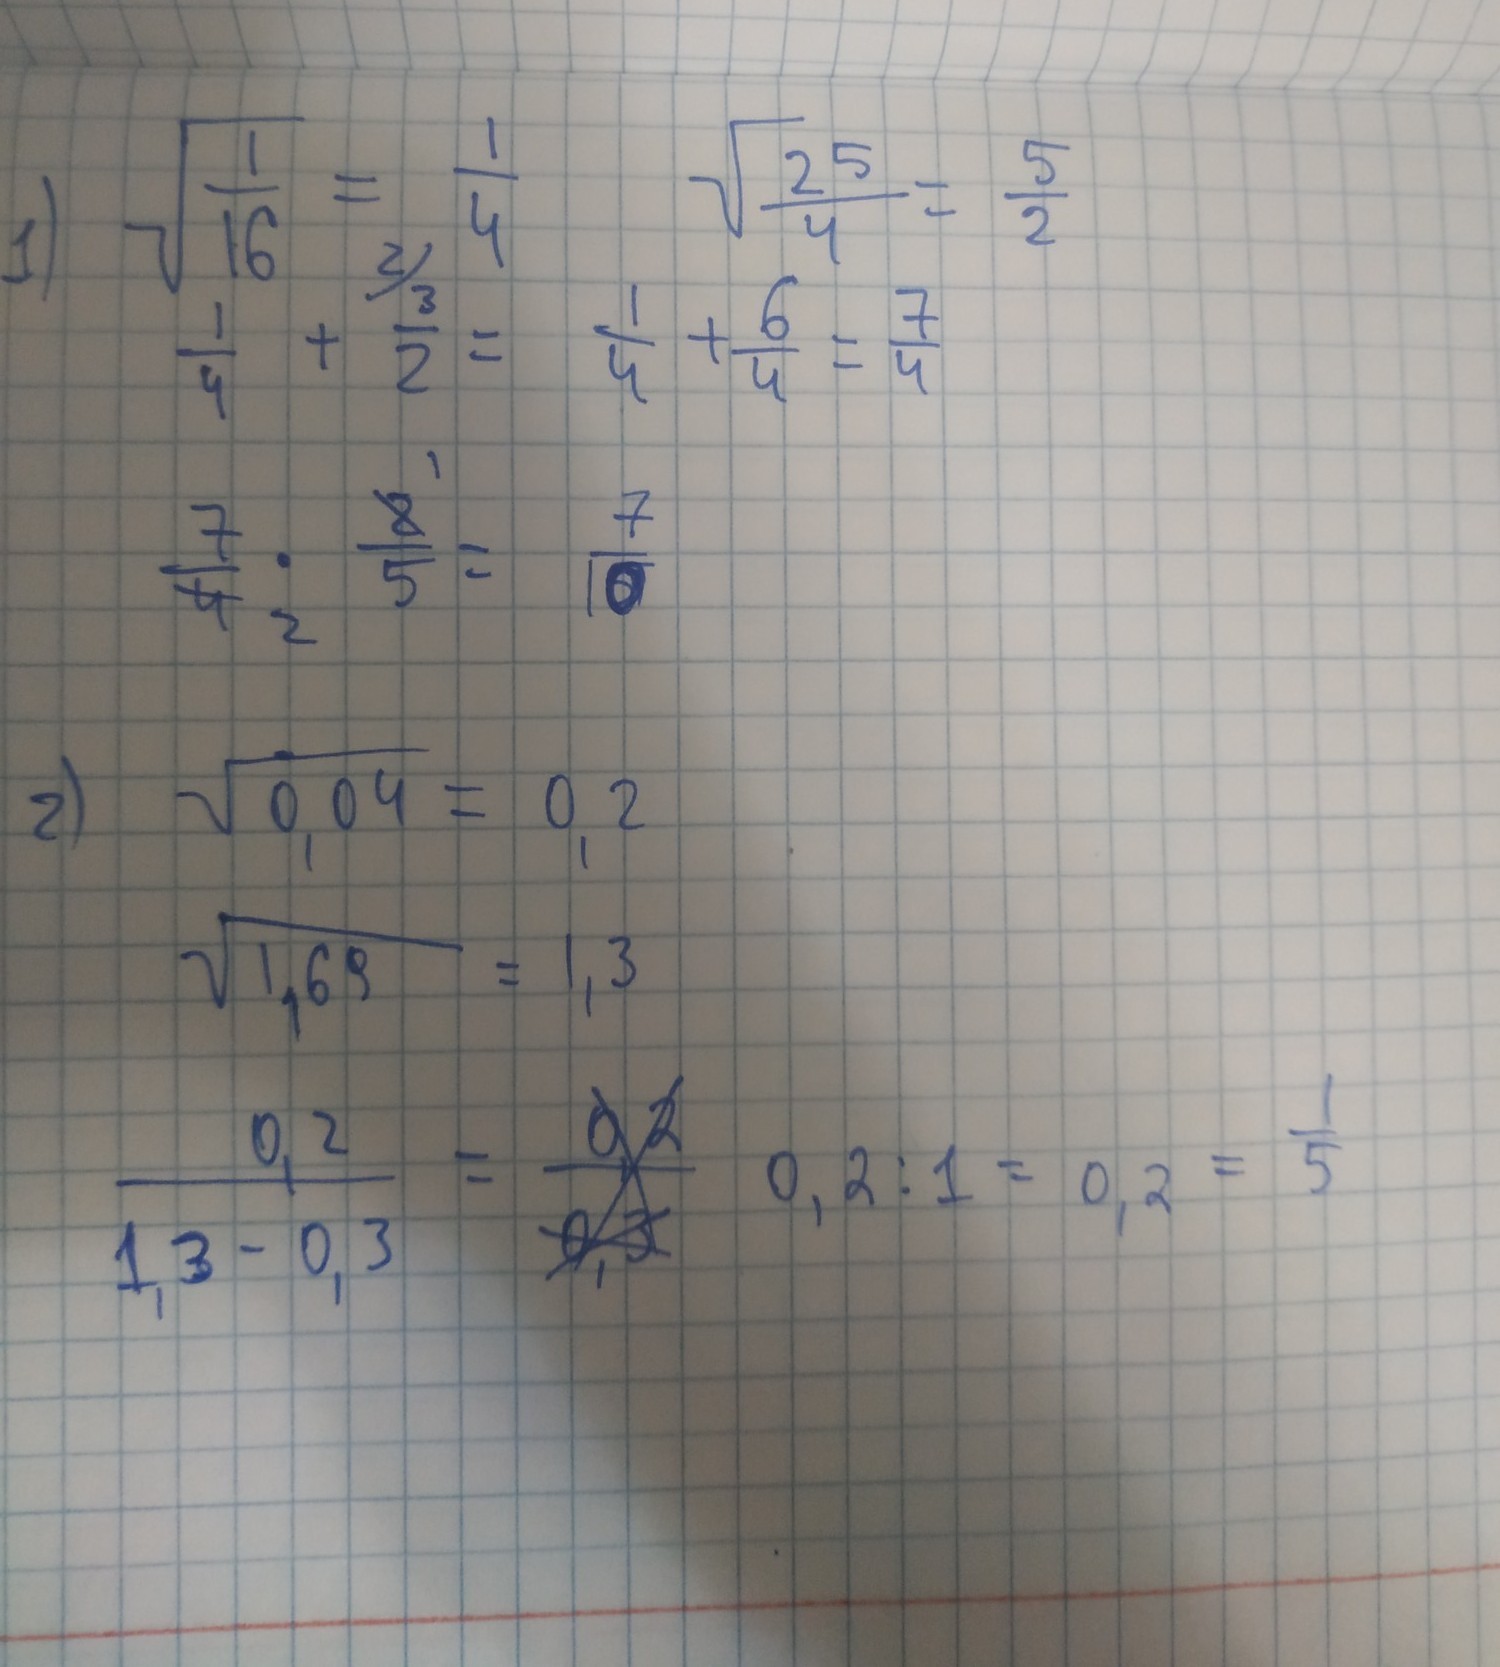 1) √(1/16) = 1/4 √(25/4) = 5/2
1/4 + 3/2 = 1/4 + 6/4 = 7/4
2/
7/4 · 2/5 = 7/10
1
2
2) √0,04 = 0,2
√1,69 = 1,3
0,2/(1,3 - 0,3) = 0,2/0,3 0,2 : 1 = 0,2 = 1/5